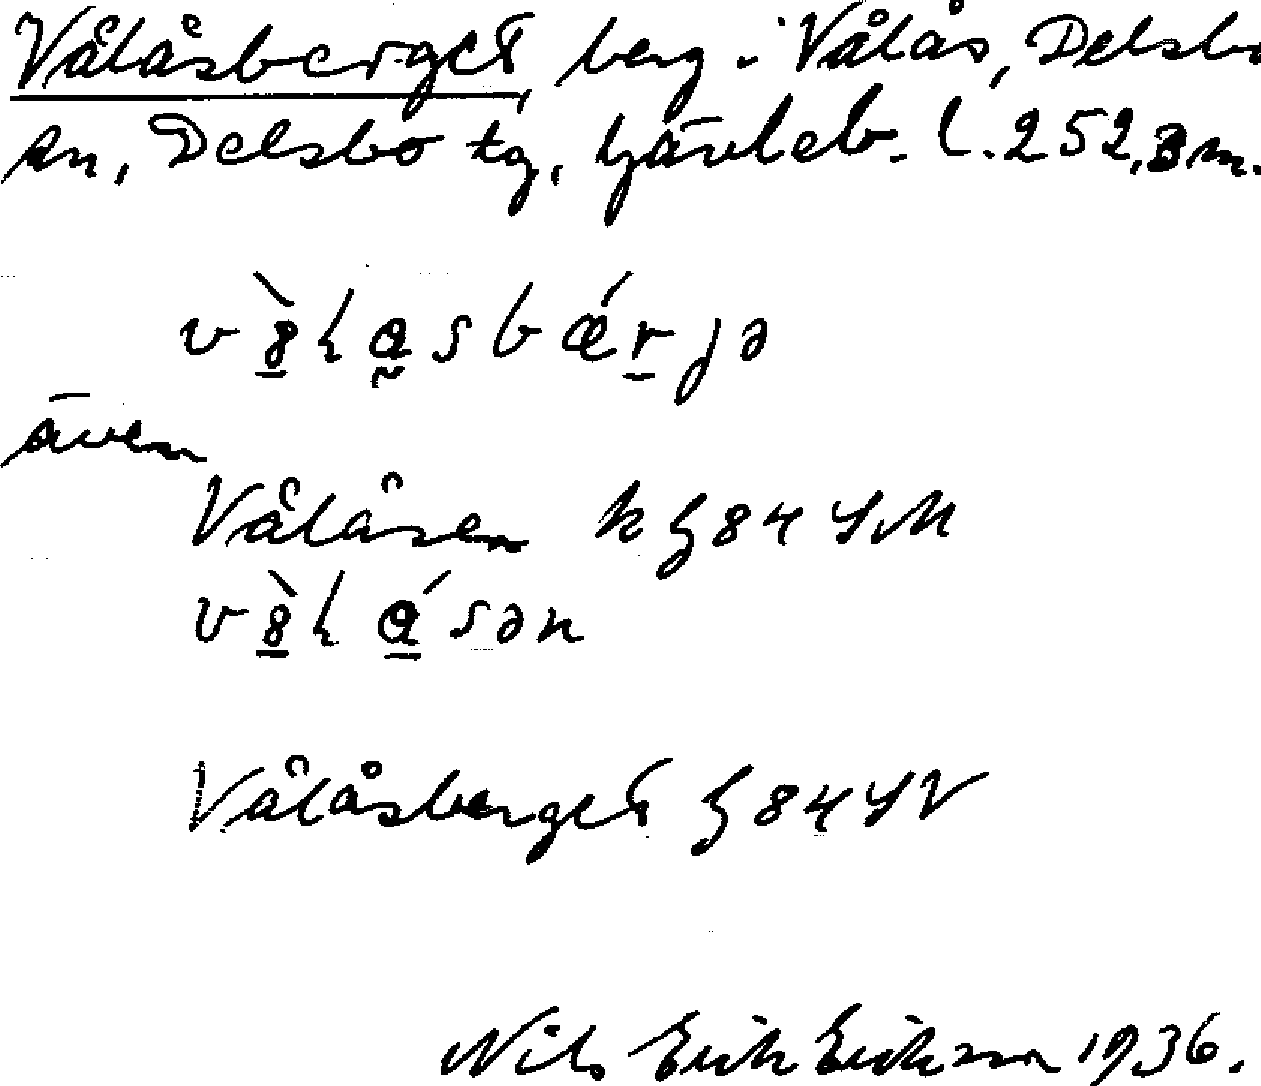 Vålåsberget, berg i Vålås, Delsbo
sn, Delsbo tg, Gävleb. l. 252,3 m.
även
Vålåsen k ξ 84 SM
Vålåsberget ξ 84 SV
Nils Erik Erikson 1936.